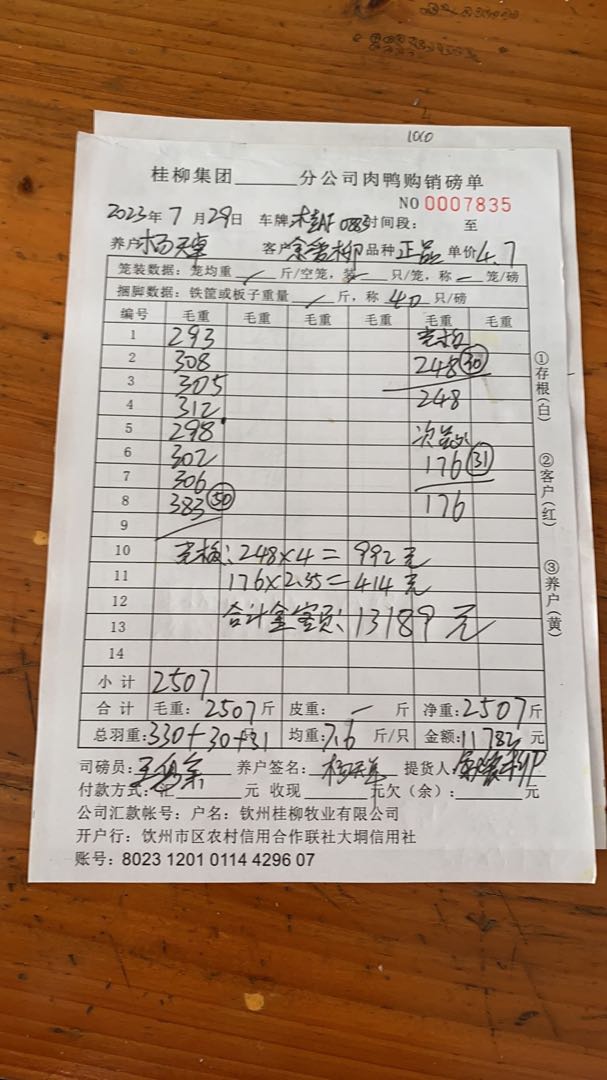 1000
桂柳集团 分公司肉鸭购销磅单
NO 0007835
2023年7月29日 车牌 桂AF 0883 时间段: 至
养户 杨天 客户 柳 品种 正品 单价 4.7
笼装数据: 笼均重 / 斤/空笼, 装 / 只/笼, 称 / 笼/磅
捆脚数据: 铁筐或板子重量 / 斤, 称 40 只/磅
编号 毛重 毛重 毛重 毛重 毛重 毛重
1 293
2 308 248 30
3 305 248
4 312
5 298 次品:
6 302 176 31
7 306 176
8 383 50
9
10 : 248×4= 992元
11 176×2.35=414元
12 合计金额: 13189元
13
14
小计 2507
合计 毛重: 2507斤 皮重: — 斤 净重: 2507斤
总羽重: 330+30+31 均重: 7.6 斤/只 金额: 11782 元
司磅员: 养户签名: 杨天 提货人: 柳
付款方式: 元 收现 元欠(余): 元
公司汇款帐号: 户名: 钦州桂柳牧业有限公司
开户行: 钦州市区农村信用合作联社大垌信用社
账号: 8023 1201 0114 4296 07
①存根(白)
②客户(红)
③养户(黄)